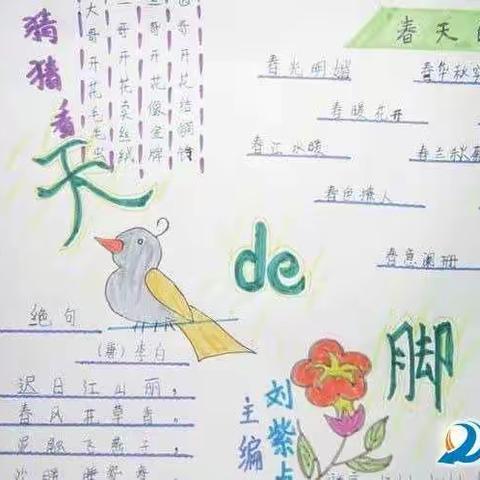 猜猜看
大哥开花毛毛虫
哥开花卖丝绒
哥开花像金牌
哥开花结铜铃
春天
春光明媚
春华秋实
春暖花开
春江水暖
春兰秋
春色撩人
春意阑珊
天
de
脚
绝句
(唐)李白
迟日江山丽，
春风花草香。
泥融飞燕子，
沙暖睡鸳
主编
刘紫